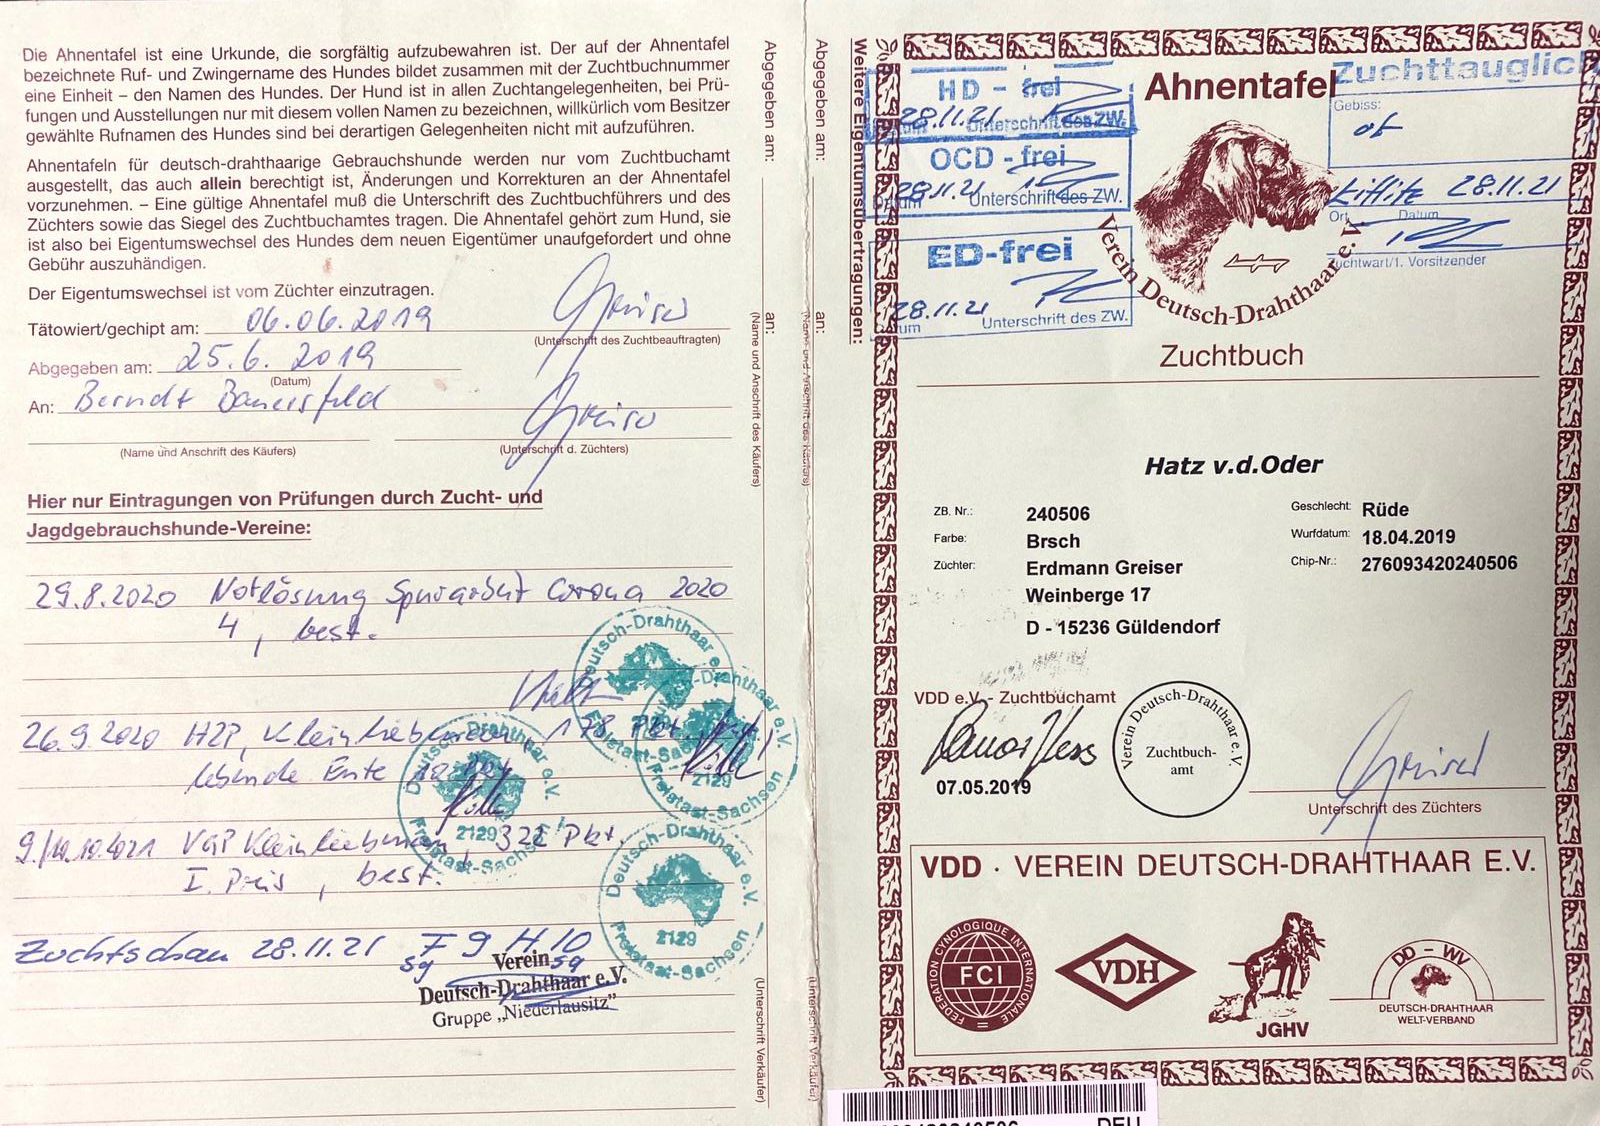 Die Ahnentafel ist eine Urkunde, die sorgfältig aufzubewahren ist. Der auf der Ahnentafel
bezeichnete Ruf- und Zwingername des Hundes bildet zusammen mit der Zuchtbuchnummer
eine Einheit – den Namen des Hundes. Der Hund ist in allen Zuchtangelegenheiten, bei Prü-
fungen und Ausstellungen nur mit diesem vollen Namen zu bezeichnen, willkürlich vom Besitzer
gewählte Rufnamen des Hundes sind bei derartigen Gelegenheiten nicht mit aufzuführen.
Ahnentafeln für deutsch-drahthaarige Gebrauchshunde werden nur vom Zuchtbuchamt
ausgestellt, das auch allein berechtigt ist, Änderungen und Korrekturen an der Ahnentafel
vorzunehmen. – Eine gültige Ahnentafel muß die Unterschrift des Zuchtbuchführers und des
Züchters sowie das Siegel des Zuchtbuchamtes tragen. Die Ahnentafel gehört zum Hund, sie
ist also bei Eigentumswechsel des Hundes dem neuen Eigentümer unaufgefordert und ohne
Gebühr auszuhändigen.
Der Eigentumswechsel ist vom Züchter einzutragen.
Tätowiert/gechipt am: 06.06.2019 Greiser
(Unterschrift des Zuchtbeauftragten)
Abgegeben am: 25.6.2019
(Datum)
An: Berndt Bauersfeld Greiser
(Name und Anschrift des Käufers) (Unterschrift d. Züchters)
Hier nur Eintragungen von Prüfungen durch Zucht- und
Jagdgebrauchshunde-Vereine:
29.8.2020 Notlösung Spurarbeit Corona 2020
4, best.
26.9.2020 HZP, Kleinliebenau, 178 Pkt
lebende Ente
9./10.10.2021 VGP Kleinliebenau, 322 Pkt,
I. Preis, best.
Zuchtschau 28.11.21 F 9 H 10
sg sg
Verein
Deutsch-Drahthaar e.V.
Gruppe „Niederlausitz"
Deutsch-Drahthaar e.V.
Freistaat-Sachsen
Drahthaar e.V.
2129
Freistaat-Sachsen
Deutsch-Drahthaar e.V.
2129
Freistaat-Sachsen
Deutsch-Drahthaar e.V.
2129
Freistaat-Sachsen
Abgegeben am:
an:
(Name und Anschrift des Käufers)
(Unterschrift Verkäufer)
Abgegeben am:
an:
(Name und Anschrift des Käufers)
(Unterschrift Verkäufer)
Weitere Eigentumsübertragungen:
HD - frei
28.11.21
Datum Unterschrift des ZW.
OCD - frei
28.11.21
Datum Unterschrift des ZW.
ED-frei
28.11.21
Datum Unterschrift des ZW.
Ahnentafel
Zuchttauglich
Gebiss:
28.11.21
Ort Datum
Zuchtwart/1. Vorsitzender
Verein Deutsch-Drahthaar e.V.
Zuchtbuch
Hatz v.d.Oder
ZB. Nr.: 240506 Geschlecht: Rüde
Farbe: Brsch Wurfdatum: 18.04.2019
Züchter: Erdmann Greiser Chip-Nr.: 276093420240506
Weinberge 17
D - 15236 Güldendorf
VDD e.V. - Zuchtbuchamt
07.05.2019
Verein Deutsch-Drahthaar e.V.
Zuchtbuch-
amt
Greiser
Unterschrift des Züchters
VDD · VEREIN DEUTSCH-DRAHTHAAR E.V.
FEDERATION CYNOLOGIQUE INTERNATIONALE
FCI
VDH
JGHV
DD – WV
DEUTSCH-DRAHTHAAR
WELT-VERBAND
DEU